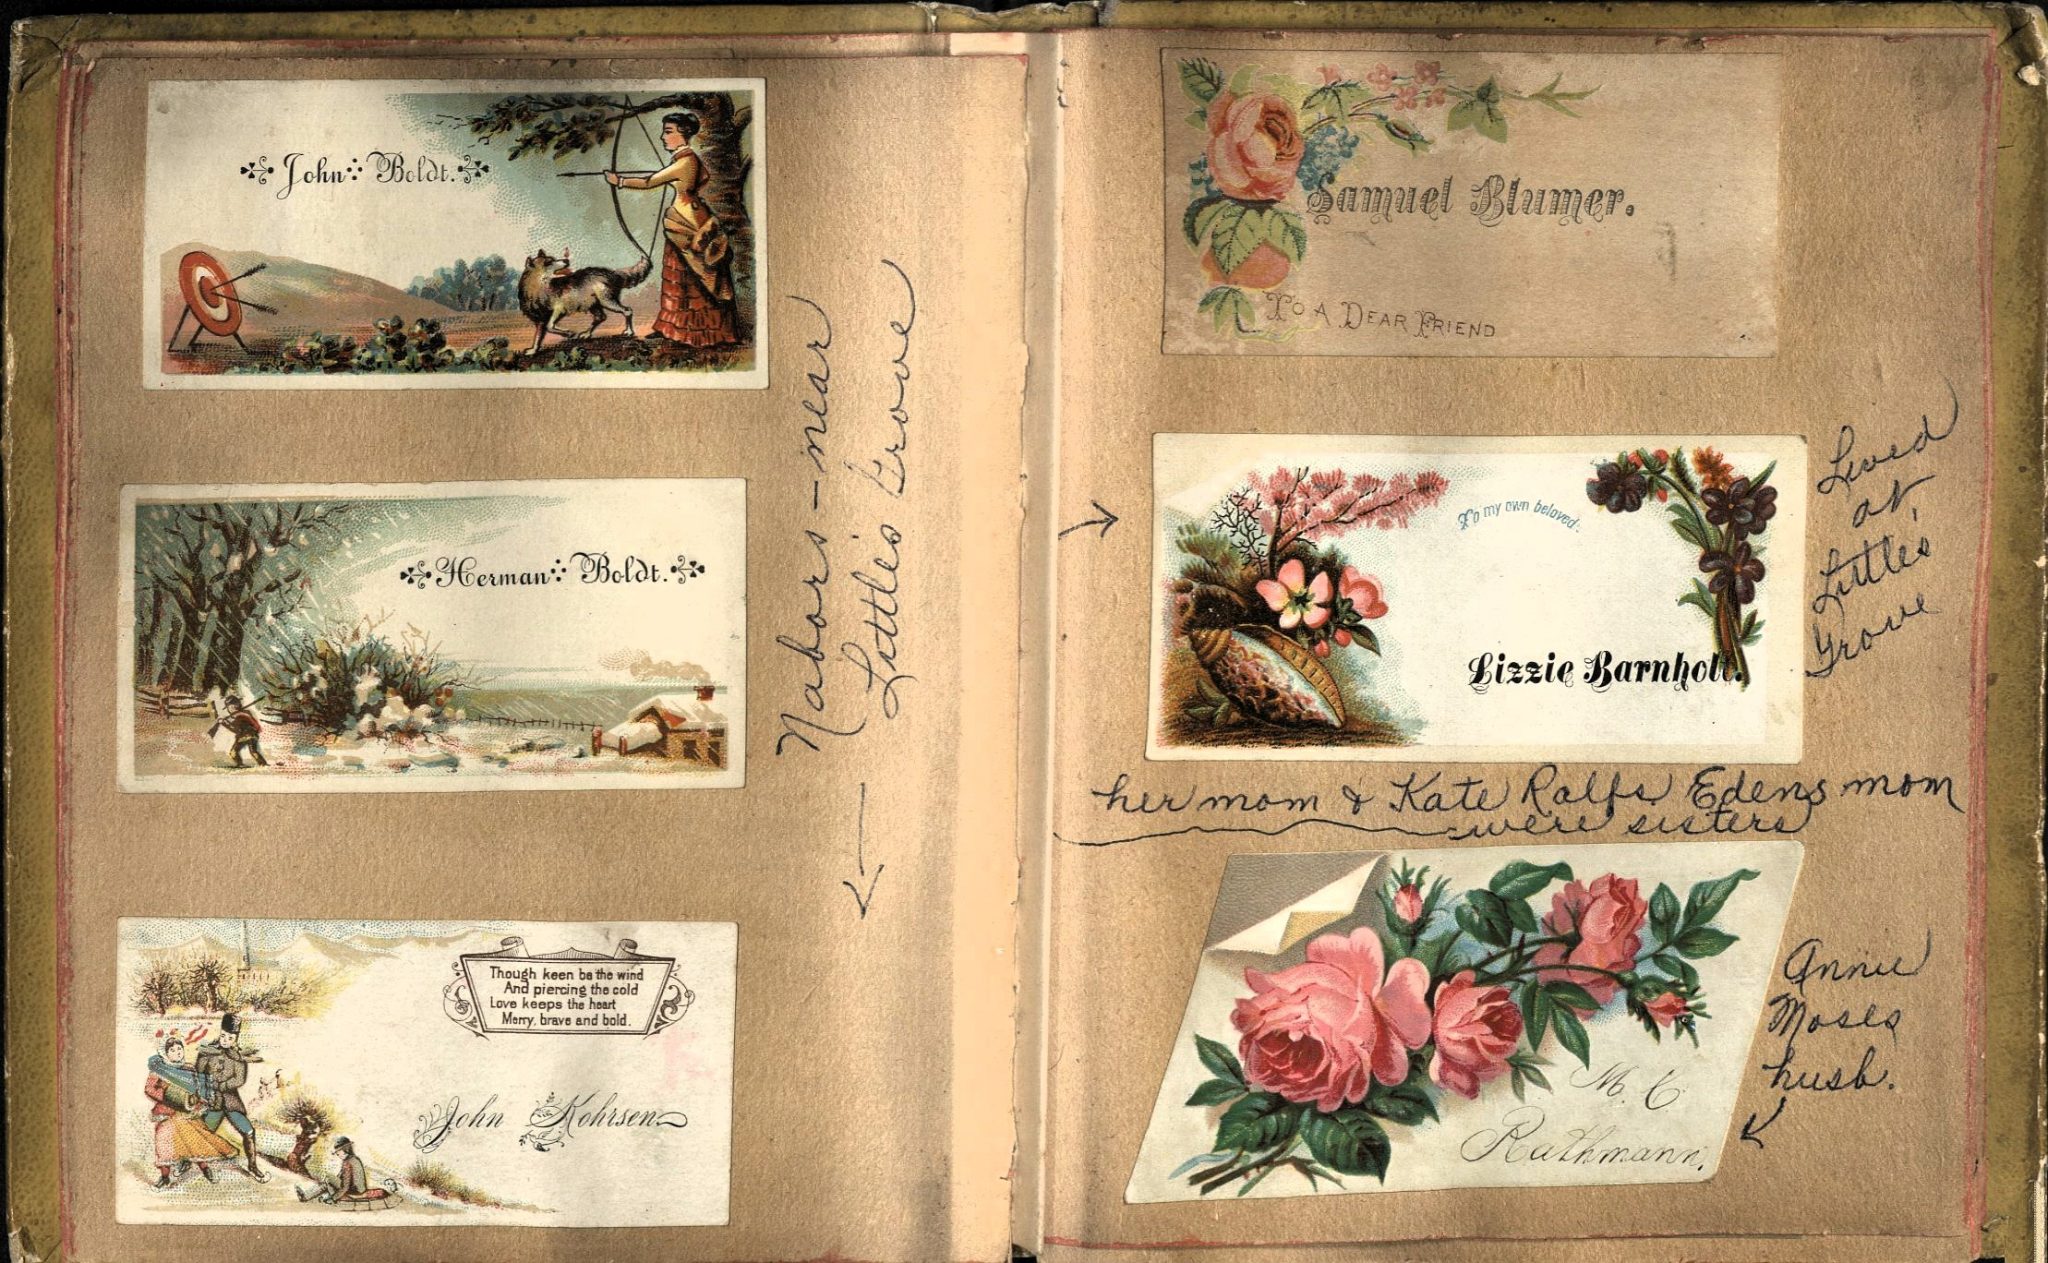 John Boldt.
Herman Boldt.
Though keen be the wind
And piercing the cold
Love keeps the heart
Merry, brave and bold.
John Kohrsen
Nabors - near
Little's Grove
Samuel Blumer.
To A Dear Friend
To my own beloved:
Lizzie Barnholt.
Lived
at
Little's
Grove
her mom & Kate Ralfs Edens mom
were sisters
M. C.
Rathmann.
Annie
Moses
husb.